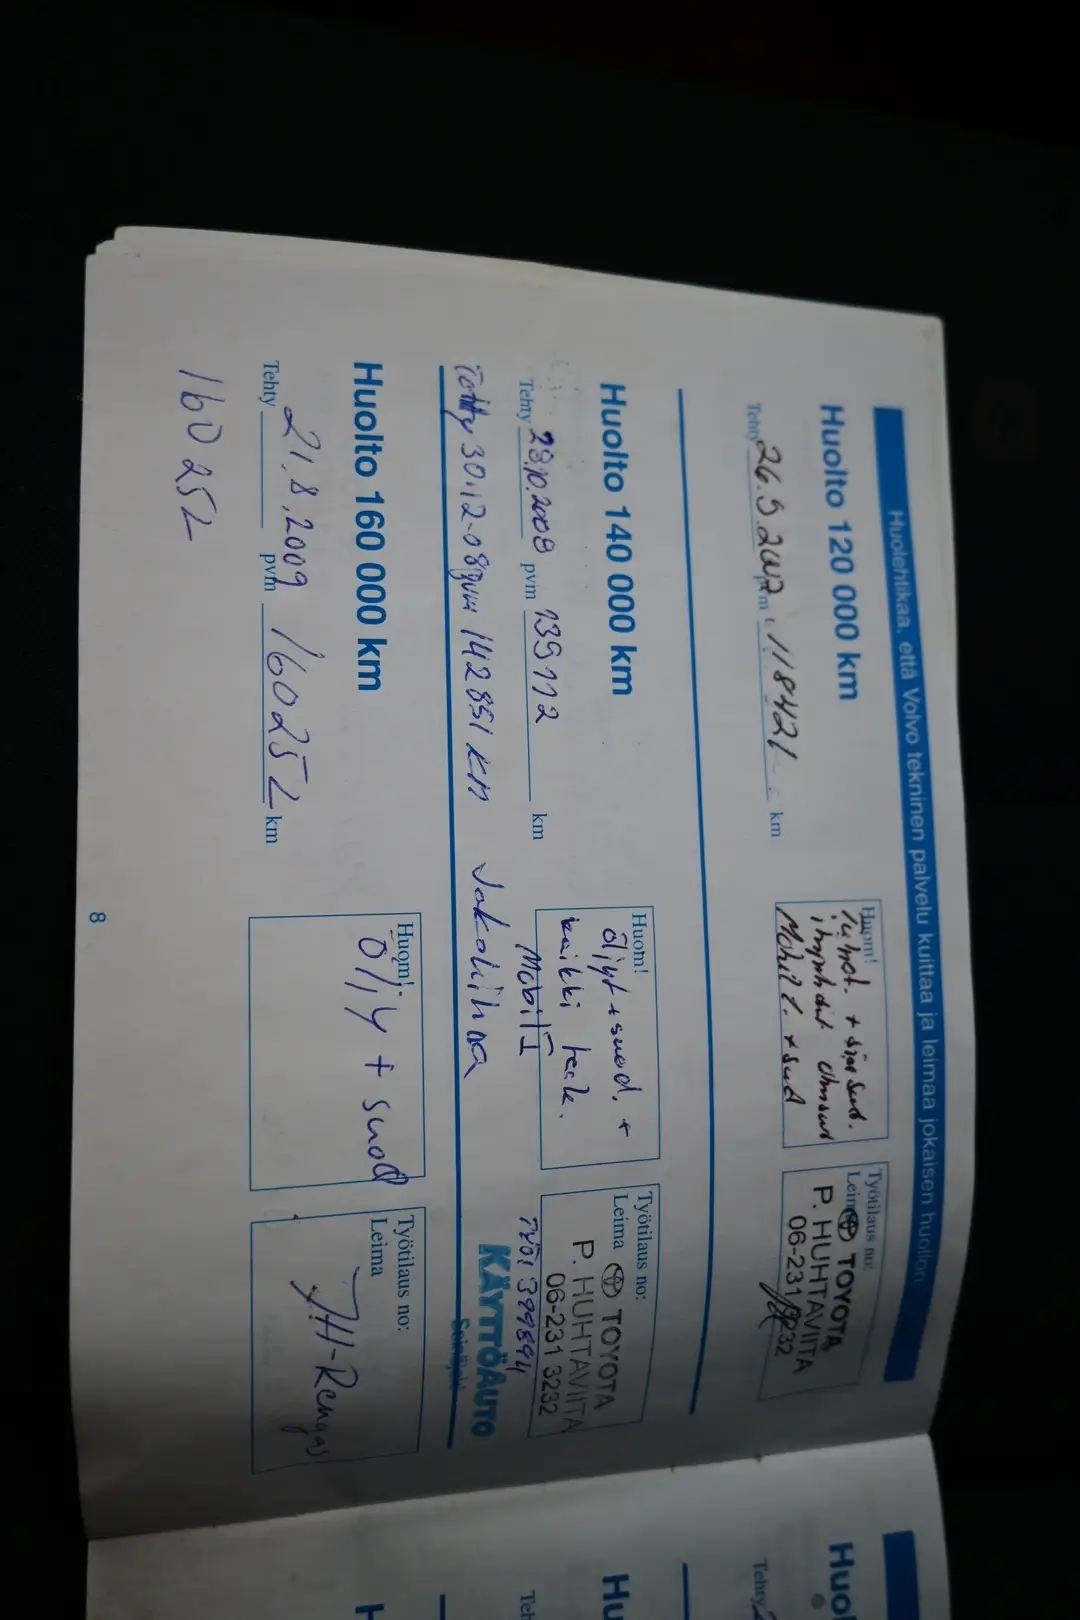 Huolehtikaa, että Volvo tekninen palvelu kuittaa ja leimaa jokaisen huollon
Huolto 120 000 km
Tehty 26.9.2007 pvm 118421 km
Huom!
+ 
Mobil 1. + suod
Työtilaus no:
Leima TOYOTA
P. HUHTAVIITA
06-231 3232
Huolto 140 000 km
Tehty 23.10.2008 pvm 139112 km
Huom!
öljyt + suod. +
kaikki tark.
Mobil 1
Työtilaus no:
Leima TOYOTA
P. HUHTAVIITA
06-231 3232
Tehty 30.12-08 pvm 142851 km Jakohihna
TYÖ: 399894
KÄYTTÖAUTO
Seinäjoki
Huolto 160 000 km
Tehty 21.8.2009 pvm 160252 km
160252
Huom!
Öljy + suod
Työtilaus no:
Leima
JH-Rengas
8
Huol
Tehty
Hu
Teh
H